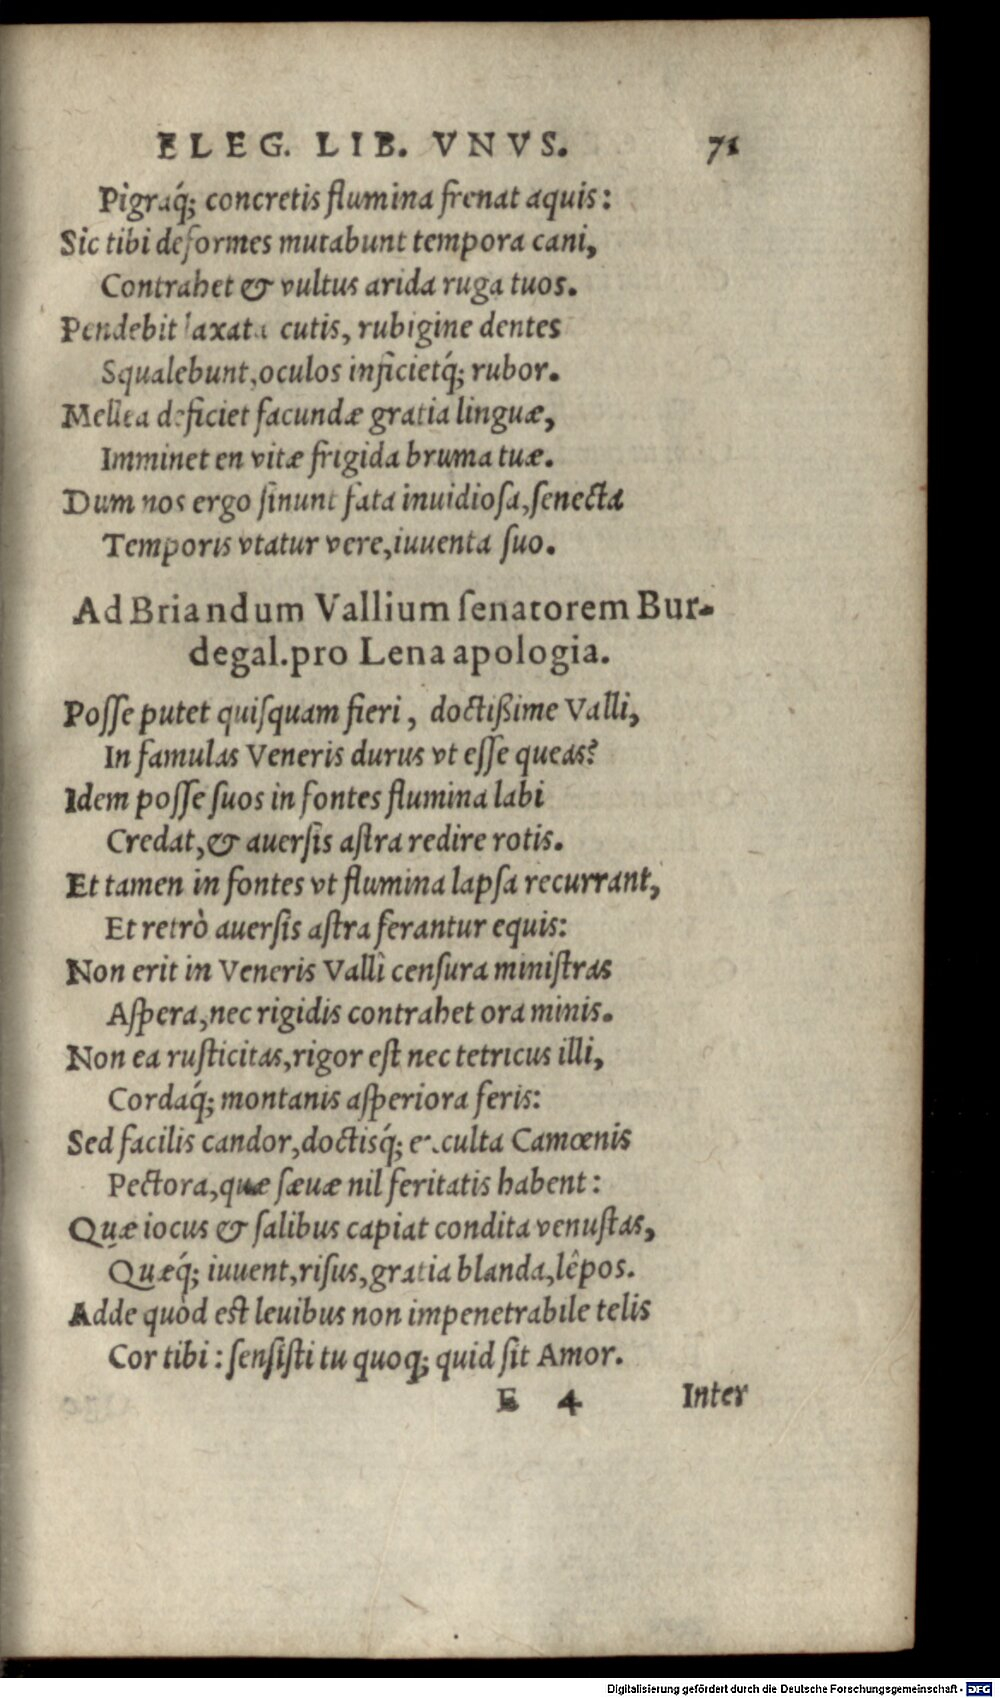 ELEG. LIB. VNVS. 71
Pigraq́; concretis flumina frenat aquis:
Sic tibi deformes mutabunt tempora cani,
Contrahet & vultus arida ruga tuos.
Pendebit laxata cutis, rubigine dentes
Squalebunt, oculos inficietq́; rubor.
Mellea deficiet facundæ gratia linguæ,
Imminet en vitæ frigida bruma tuæ.
Dum nos ergo ſinunt fata inuidioſa, ſenecta
Temporis vtatur vere, iuuenta ſuo.
Ad Briandum Vallium ſenatorem Bur-
degal. pro Lena apologia.
Poſſe putet quiſquam fieri, doctißime Valli,
In famulas Veneris durus vt eſſe queas?
Idem poſſe ſuos in fontes flumina labi
Credat, & auerſis aſtra redire rotis.
Et tamen in fontes vt flumina lapſa recurrant,
Et retrò auerſis aſtra ferantur equis:
Non erit in Veneris Vallî cenſura miniſtras
Aſpera, nec rigidis contrahet ora minis.
Non ea ruſticitas, rigor eſt nec tetricus illi,
Cordaq́; montanis aſperiora feris:
Sed facilis candor, doctisq́; culta Camœnis
Pectora, quæ ſæuæ nil feritatis habent:
Quæ iocus & ſalibus capiat condita venuſtas,
Quæq́; iuuent, riſus, gratia blanda, lêpos.
Adde quòd eſt leuibus non impenetrabile telis
Cor tibi: ſenſiſti tu quoq; quid ſit Amor.
E 4 Inter
Digitalisierung gefördert durch die Deutsche Forschungsgemeinschaft - DFG